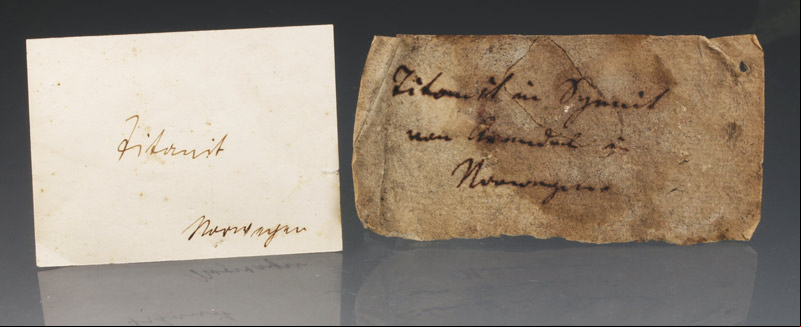 Titanit
Norwegen
Titanit in Syenit
von Arendal in
Norwegen